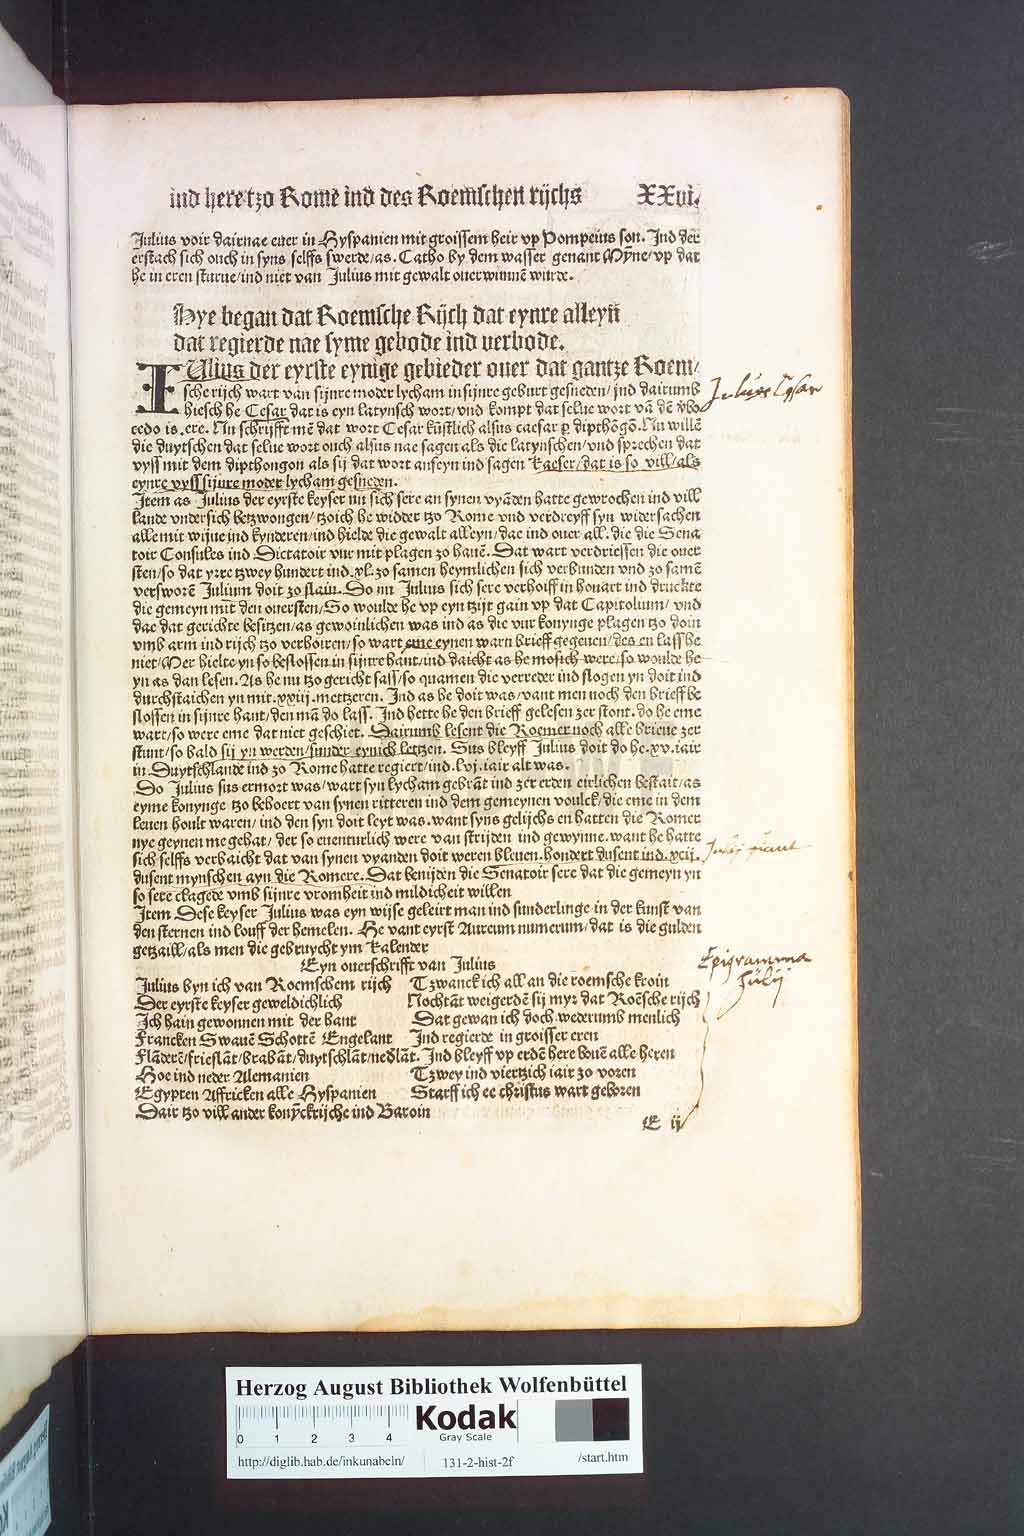 ind here tzo Rome ind des Roemschen rijchs XXvi.
Julius voir dairnae euer in Hyspanien mit groissem heir vp Pompeius son. Ind der
erstach sich ouch in syns selffs swerde/as. Catho by dem wasser genant Myne/vp dat
he in eren sturue/ind niet van Julius mit gewalt ouerwunnē wurde.
Hye began dat Roemsche Rijch dat eynre alleyn
dat regierde nae syme gebode ind verbode.
IUlius der eyrste eynige gebieder ouer dat gantze Roem/
sche rijch wart van sijnre moder lycham in sijnre geburt gesneden/ind dairumb
hiesch he Cesar dat is eyn latynsch wort/vnd kompt dat selue wort vā dē vbo
cedo is .ere. Nu schrijfft mē dat wort Cesar kūstlich alsus caesar p dipthōgō. Nu willē
die duytschen dat selue wort ouch alsus nae sagen als die latynschen/vnd sprechen dat
vyss mit dem dipthongon als sij dat wort anseyn ind sagen Kaeser/dat is so vill/als
eynre vyss sijnre moder lycham gesneden.
Item as Julius der eyrste keyser nu sich sere an synen vyāden hatte gewrochen ind vill
lande vndersich betzwongen/tzoich he widder tzo Rome vnd verdreyff syn widersachen
alle mit wijue ind kynderen/ind hielde die gewalt alleyn/dae ind ouer all. die die Sena
toir Consules ind Dictatoir vur mit plagen zo hauē. Dat wart verdriessen die ouer
sten/so dat yrre tzwey hundert ind .xl. zo samen heymlichen sich verbunden vnd zo samē
versworē Julium doit zo slain. Do nu Julius sich sere verhoiff in honart ind druckte
die gemeyn mit den ouersten/So woulde he vp eyn tzijt gain vp dat Capitolium/vnd
dae dat gerichte besitzen/as gewoinlichen was ind as die vur konynge plagen tzo doin
vmb arm ind rijch tzo verhoiren/so wart eme eynen warn brieff gegeuen/des en lass he
niet/Mer hielte yn so beslossen in sijnre hant/ind daicht as he mosich were/so woulde he
yn as dan lesen. As he nu tzo gericht sass/so quamen die verreder ind slogen yn doit ind
durchstaichen yn mit .xxiij. metzeren. Ind as he doit was/vant men noch den brieff be
slossen in sijnre hant/den mā do lass. Ind hette he den brieff gelesen zer stont. do he eme
wart/so were eme dat niet geschiet. Dairumb lesent die Roemer noch alle brieue zer
stunt/so bald sij yn werden/sunder eynich letzen. Sus bleyff Julius doit do he .xv. iair
in Duytschlande ind zo Rome hatte regiert/ind .lvj. iair alt was.
Do Julius sus ermort was/wart syn lycham gebrāt ind zer erden eirlichen bestait/as
eyme konynge tzo behoert van synen ritteren ind dem gemeynen voulck/die eme in dem
leuen hoult waren/ind den syn doit leyt was. want syns gelijchs en hatten die Romer
nye geynen me gehat/der so euenturlich were van strijden ind gewynne. want he hatte
sich selffs verhaicht dat van synen vyanden doit weren bleuen. hondert dusent ind .xcij.
dusent mynschen ayn die Romere. Dat benijden die Senatoir sere dat die gemeyn yn
so sere clagede vmb sijnre vromheit ind mildicheit willen
Item Dese keyser Julius was eyn wijse geleirt man ind sunderlinge in der kunst van
den sternen ind louff der hemelen. He vant eyrst Aureum numerum/dat is die gulden
getzaill/als men die gebruycht ym Kalender
Eyn ouerschrifft van Julius
Julius byn ich van Roemschem rijch
Der eyrste keyser geweldichlich
Ich hain gewonnen mit der hant
Francken Swauē Schottē Engelant
Flāderē/frieslāt/brabāt/duytschlāt/nedlāt.
Hoe ind neder Alemanien
Egypten Affricken alle Hyspanien
Dair tzo vill ander konȳckrijche ind Baroin
Tzwanck ich all an die roemsche kroin
Nochtāt weigerdē sij myr dat Roēsche rijch
Dat gewan ich doch wederumb menlich
Ind regierde in groisser eren
Ind bleyff vp erdē here bouē alle heren
Tzwey ind viertzich iair zo voren
Starff ich ee christus wart geboren
E ij
Julius Cesar
Epigramma
Julij
Herzog August Bibliothek Wolfenbüttel
0 1 2 3 4
Kodak
Gray Scale
http://diglib.hab.de/inkunabeln/ 131-2-hist-2f /start.htm